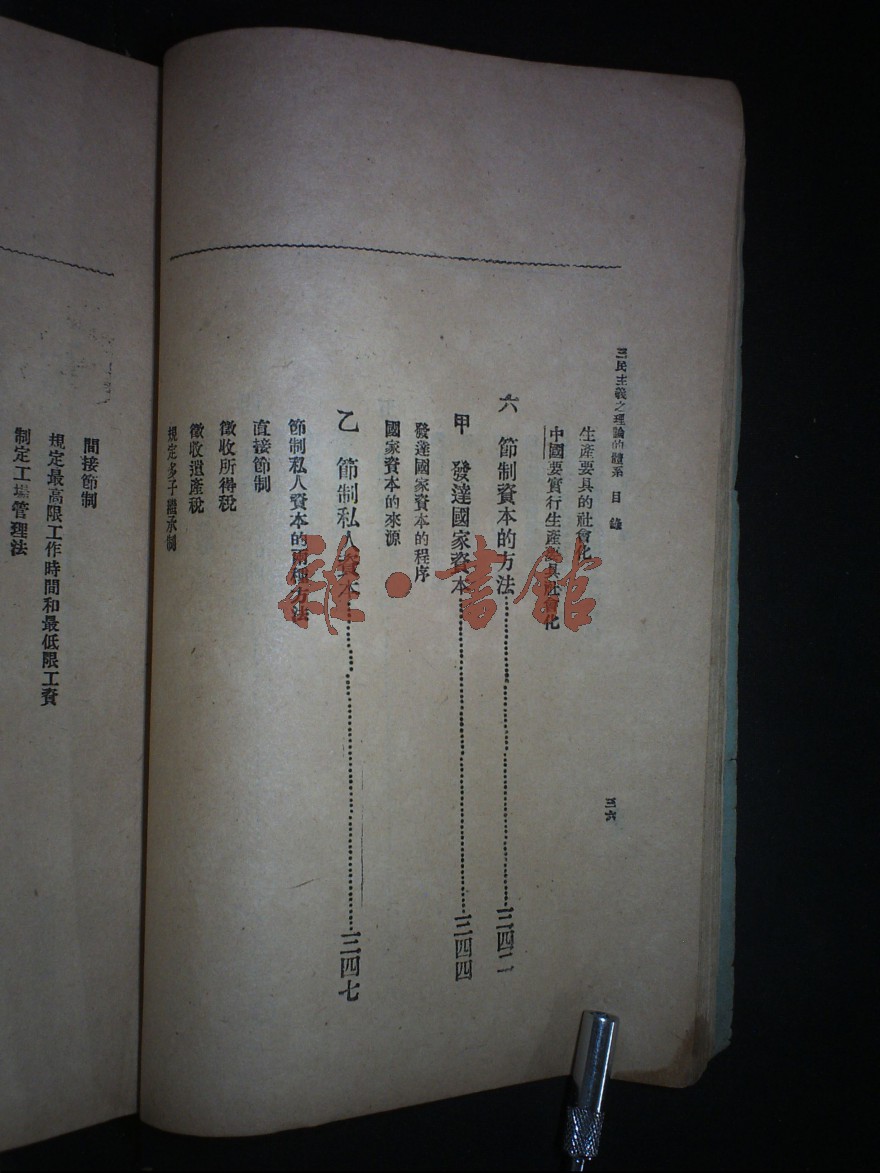 三民主義之理論的體系 目錄
三六
生產要具的社會化
中國要實行生產要具社會化
六 節制資本的方法……三四二
甲 發達國家資本……三四四
發達國家資本的程序
國家資本的來源
乙 節制私人資本……三四七
節制私人資本的兩種方法
直接節制
徵收所得稅
徵收遺產稅
規定多子繼承制
間接節制
規定最高限工作時間和最低限工資
制定工場管理法
雜·書館